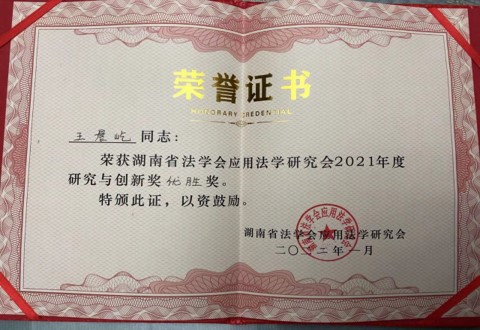 荣誉证书
HONORARY CREDENTIAL
王晨屹 同志：
荣获湖南省法学会应用法学研究会2021年度
研究与创新奖优胜奖。
特颁此证，以资鼓励。
湖南省法学会应用法学研究会
二〇二二年一月
湖南省法学会应用法学研究会